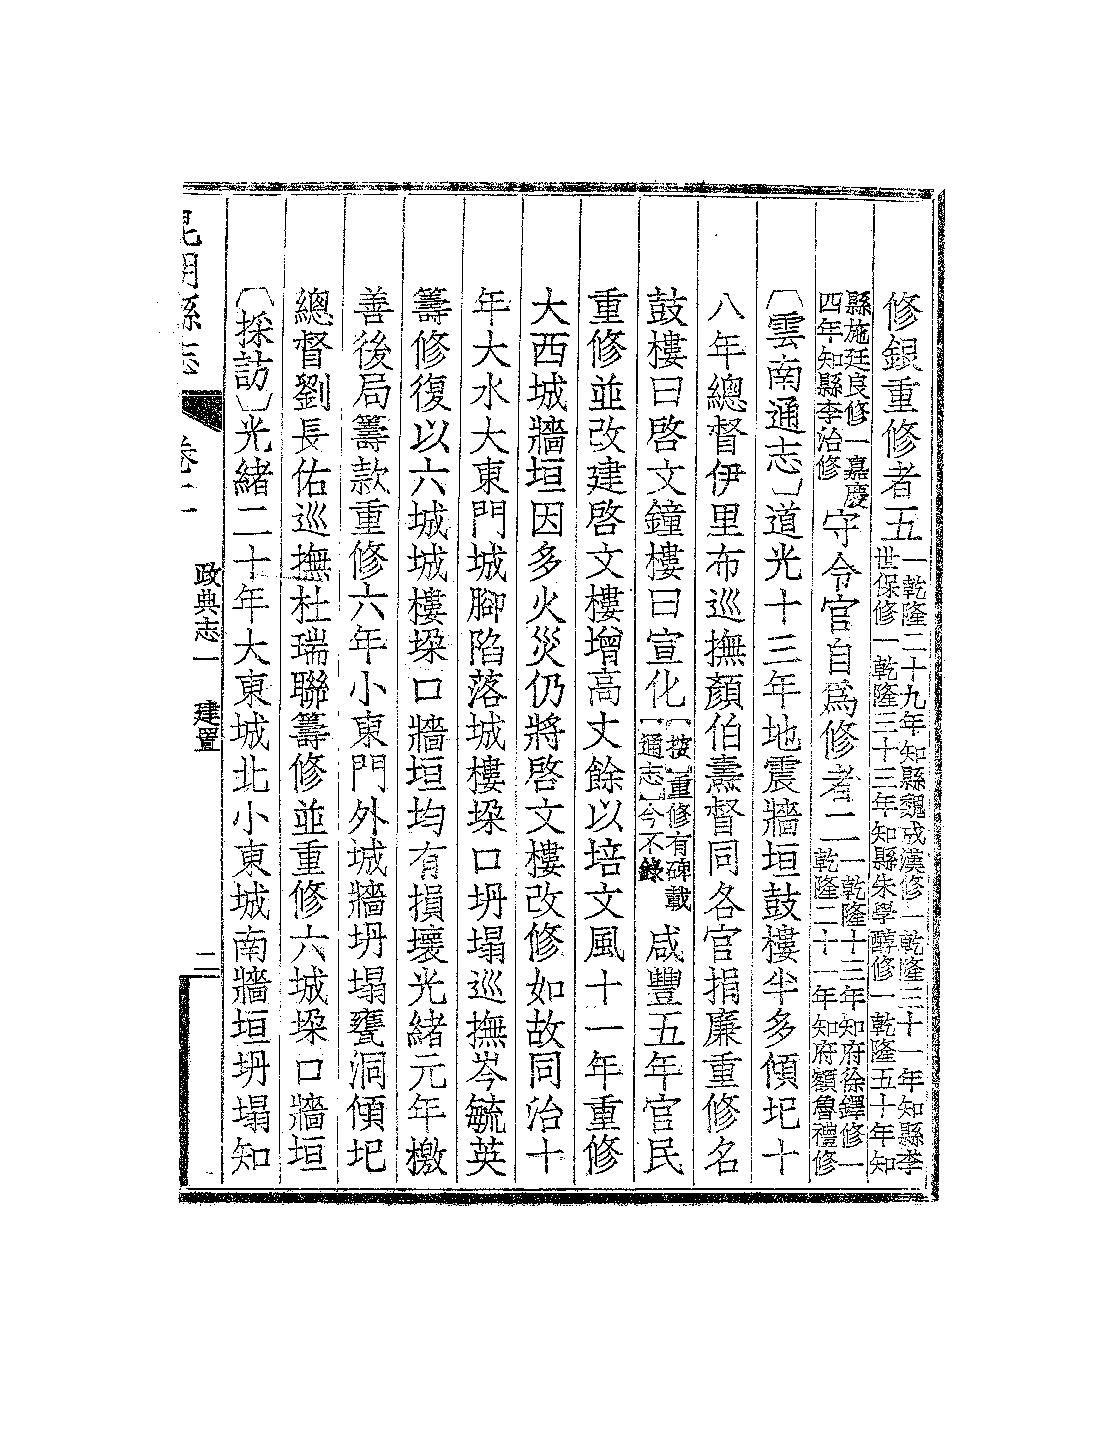 修銀重修者五一乾隆二十九年知縣魏成漢修一乾隆三十一年知縣李世保修一乾隆三十三年知縣朱學醇修一乾隆五十年知
縣施廷良修一嘉慶四年知縣李治修守令官自爲修者二一乾隆十三年知府徐鐸修一乾隆二十一年知府額魯禮修
〔雲南通志〕道光十三年地震牆垣鼓樓半多傾圯十
八年總督伊里布巡撫顏伯燾督同各官捐廉重修名
鼓樓曰啓文鐘樓曰宣化〔按〕重修有碑載〔通志〕今不錄咸豐五年官民
重修並改建啓文樓增高丈餘以培文風十一年重修
大西城牆垣因多火災仍將啓文樓改修如故同治十
年大水大東門城腳陷落城樓垛口坍塌巡撫岑毓英
籌修復以六城城樓垛口牆垣均有損壞光緒元年檄
善後局籌款重修六年小東門外城牆坍塌甕洞傾圯
總督劉長佑巡撫杜瑞聯籌修並重修六城垛口牆垣
〔採訪〕光緒二十年大東城北小東城南牆垣坍塌知
昆明縣志 卷二 政典志一 建置 二